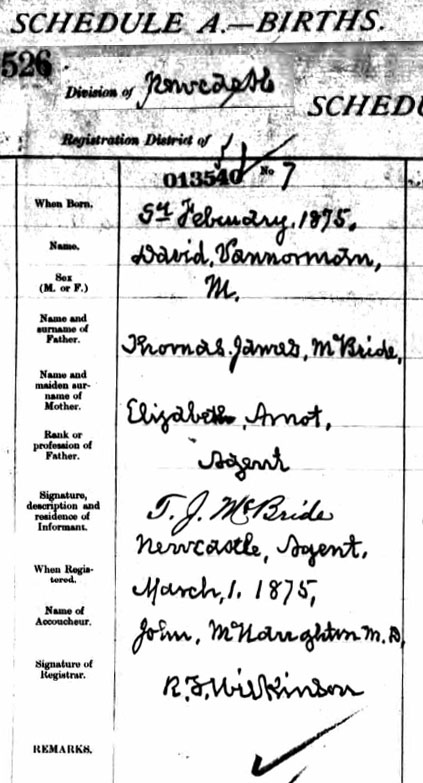 SCHEDULE A.—BIRTHS.
526
Division of Newcastle
SCHEDU
Registration District of
013540 No 7
When Born. 5th February, 1875,
Name. David, Vannorman,
Sex
(M. or F.) M.
Name and
surname of
Father. Thomas. James, McBride,
Name and
maiden sur-
name of
Mother. Elizabeth, Arnot,
Rank or
profession of
Father. Agent
Signature,
description and
residence of
Informant. T. J. McBride
Newcastle, Agent.
When Regis-
tered. March, 1. 1875,
Name of
Accoucheur. John, McNaughton M. D,
Signature of
Registrar. R. J. Wilkinson
REMARKS.